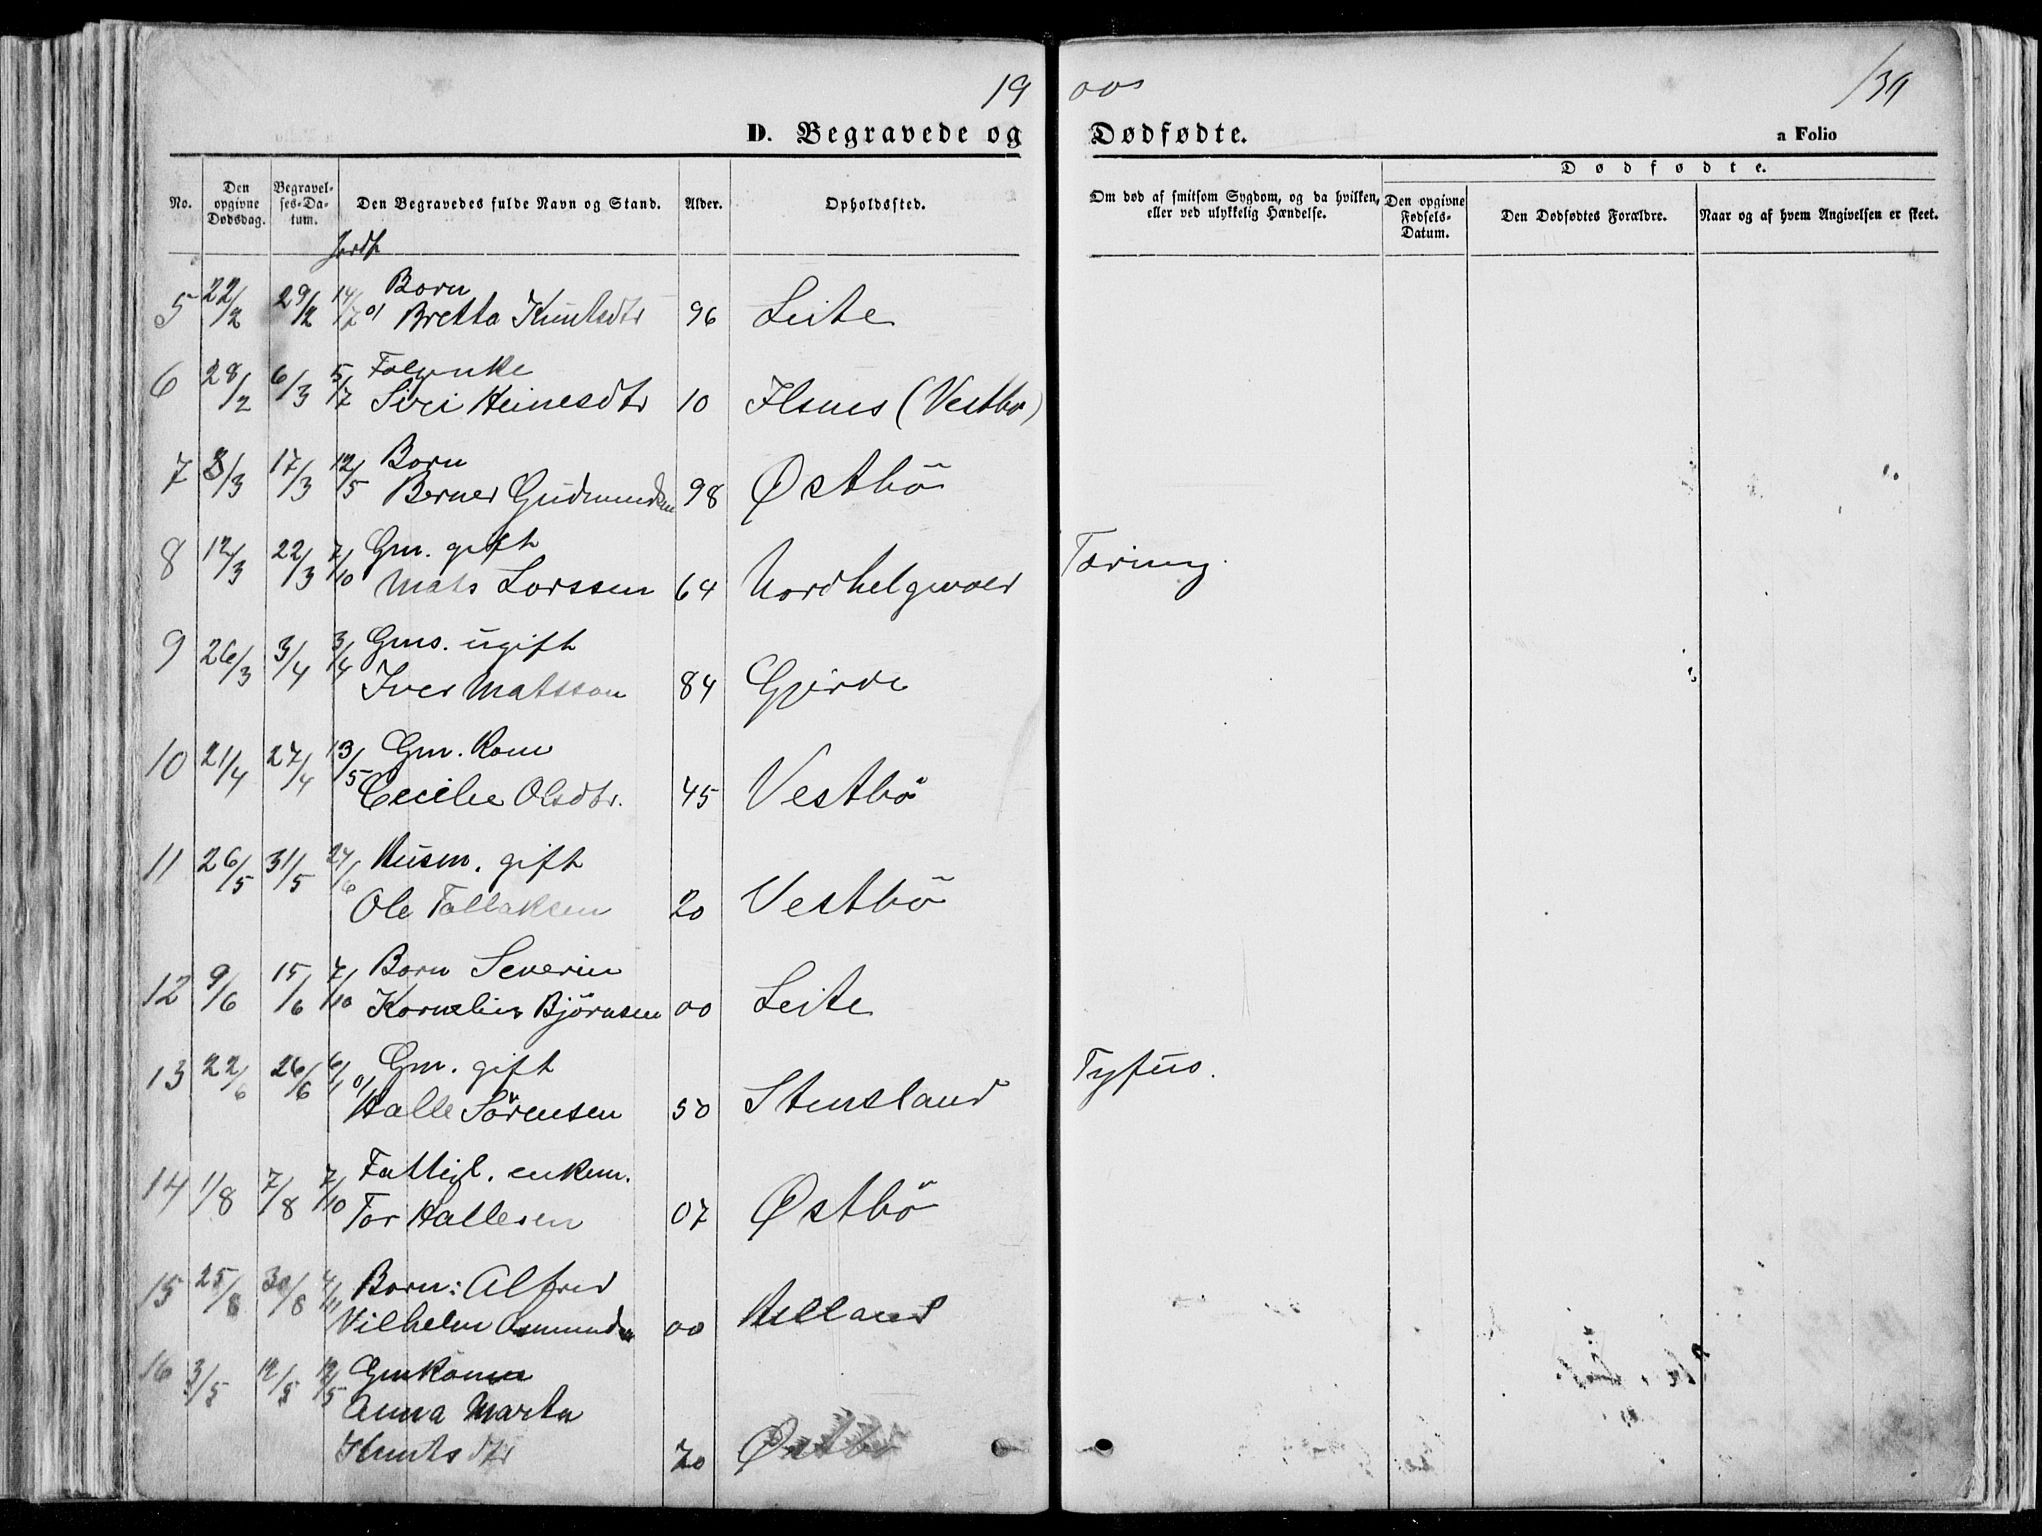 19
D. Begravede og
No.
Den opgivne Dødsdag.
Begravel-ses-Da-tum.
Den Begravedes fulde Navn og Stand.
Alder.
Opholdssted.
Jordf
5 22/2 29/2 14/7 01 Barn
Bretta Knutsdtr 96 Leite
6 28/2 6/3 5/7
Siri Heinesdtr 10 Ilsnes (Vestbø)
7 8/3 17/3 12/5 Barn
Berner Gudmundsen 98 Østbö
8 12/3 22/3 7/10 Gm. gift
Mats Larssen 64
9 26/3 3/4 3/4 Gms. ugift
Iver Matsson 84 Gjerde
10 21/4 27/4 13/5 Gm. Kone
Cecilie Olsdtr. 45 Vestbö
11 26/5 31/5 24/6 Husm. gift
Ole Tollaksen 20 Vestbö
12 9/6 15/6 7/10 Barn Severin
Kornelius Björnsen 00 Leite
13 22/6 26/6 6/1 01 Gm. gift
Halle Sörensen 50 Stensland
14 1/8 7/8 7/10 Fattigl. enkem.
Tor Hallesen 07 Østbö
15 25/8 30/8 4/11 Barn: Alfred
Vilhelm Osmundsen 00
16 3/5 12/5 12/5 Gmkone
Anna Marta
Knutsdtr 70 Østbø
00
139
Dødfødte.
a Folio
Om død af smitsom Sygdom, og da hvilken, eller ved ulykkelig Hændelse.
Dødfødte.
Den opgivne Fødsels-Datum.
Den Dødfødtes Forældre.
Naar og af hvem Angivelsen er skeet.
Tæring.
Tyfus.